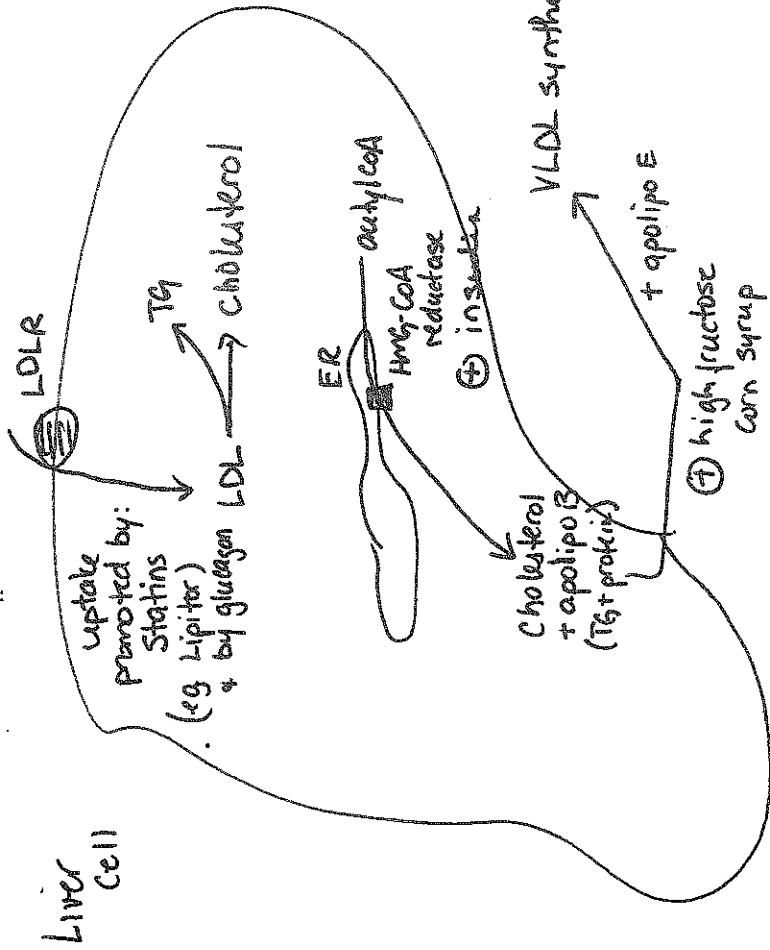 Liver
Cell
LDLR
uptake
promoted by:
Statins
(eg Lipitor)
+ by glucagon
LDL
TG
Cholesterol
ER
acetyl CoA
HMG-CoA
reductase
⊕ insulin
Cholesterol
+ apolipo B
(TG + protein)
VLDL
+ apolipo E
⊕ high fructose
corn syrup